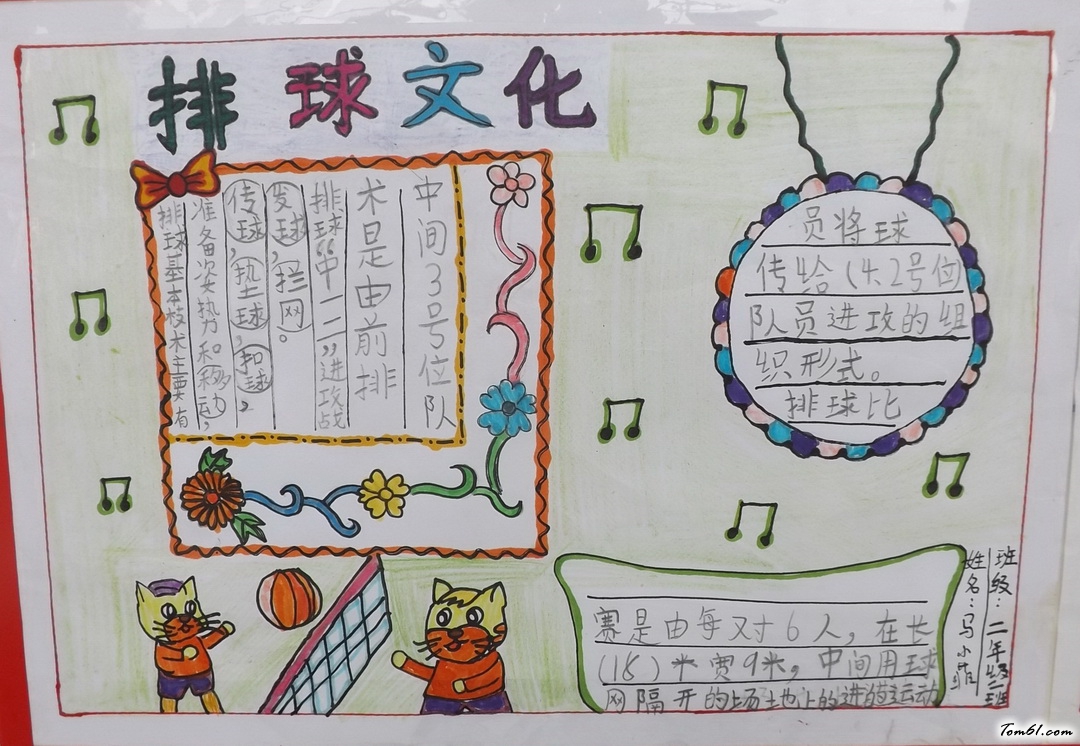 排球文化
排球基本技术主要有
准备姿势和移动，
传球，垫球，扣球，
发球，拦网。
排球“中一二”进攻战
术是由前排
中间3号位队
员将球
传给(4.2号位
队员进攻的组
织形式。
排球比
赛是由每对6人，在长
(18)米宽9米，中间用球
网隔开的场地上的进运动
班级：二年级二班
姓名：马小菲
Tom61.com